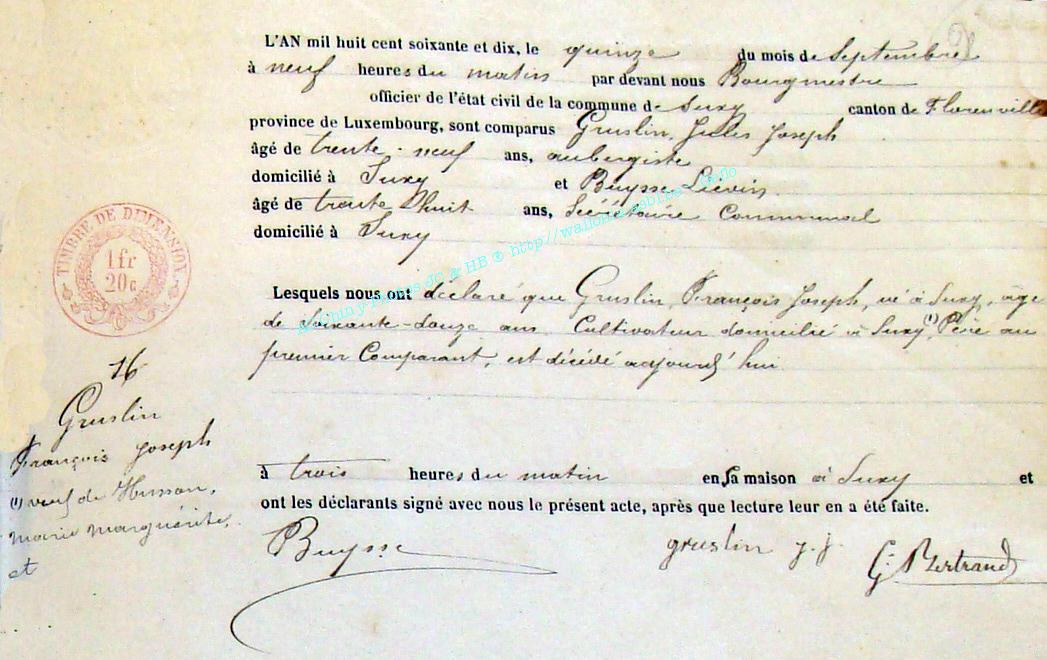 L'AN mil huit cent soixante et dix, le quinze du mois de Septembre
à neuf heures du matin par devant nous Bourgmestre
officier de l'état civil de la commune de Suxy canton de Florenville
province de Luxembourg, sont comparus Gruslin, Jules Joseph
âgé de trente-neuf ans, aubergiste
domicilié à Suxy et Buysse Liévin
âgé de trente huit ans, Sécrétaire Communal
domicilié à Suxy
TIMBRE DE DIMENSION
1 fr
20 c
Lesquels nous ont déclaré que Gruslin, François Joseph, né à Suxy, âgé
de Soixante-douze ans Cultivateur domicilié à Suxy (1), Père au
premier Comparant, est décédé aujourd'hui
16
Gruslin
François Joseph
(1) veuf de Husson,
marie marguérite,
et
à trois heures du matin en sa maison à Suxy et
ont les déclarants signé avec nous le présent acte, après que lecture leur en a été faite.
Buysse
gruslin j. j.
G. Bertrand
JC & HB ® http://